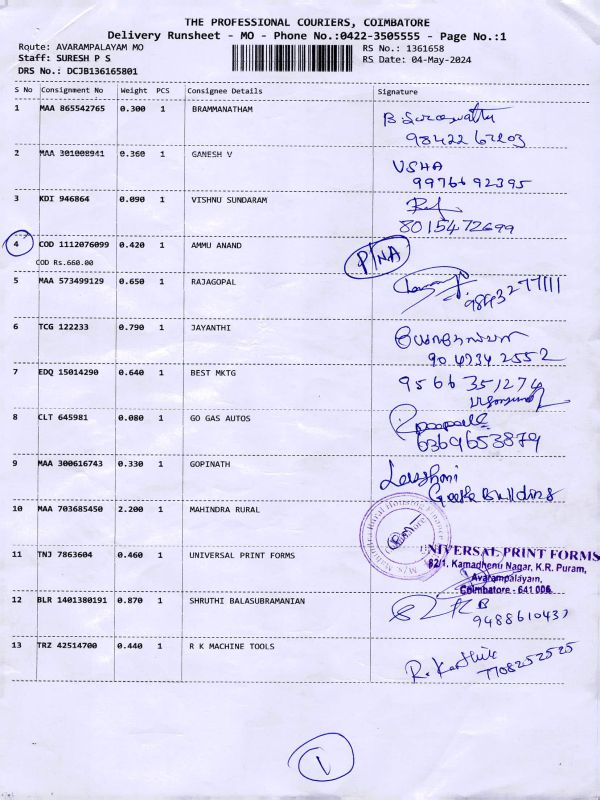 THE PROFESSIONAL COURIERS, COIMBATORE
Delivery Runsheet - MO - Phone No.:0422-3505555 - Page No.:1
Route: AVARAMPALAYAM MO
RS No.: 1361658
Staff: SURESH P S
RS Date: 04-May-2024
DRS No.: DCJB136165801
S No Consignment No Weight PCS Consignee Details Signature
1 MAA 865542765 0.300 1 BRAMMANATHAM
B
2 MAA 301008941 0.360 1 GANESH V
USHA
9976692395
3 KDI 946864 0.090 1 VISHNU SUNDARAM
8015472699
4 COD 1112076099 0.420 1 AMMU ANAND P/NA
COD Rs.660.00
5 MAA 573499129 0.650 1 RAJAGOPAL
9843277111
6 TCG 122233 0.790 1 JAYANTHI
904234 2552
7 EDQ 15014290 0.640 1 BEST MKTG
9566351274
8 CLT 645981 0.080 1 GO GAS AUTOS
6369653879
9 MAA 300616743 0.330 1 GOPINATH
Geetha Building
10 MAA 703685450 2.200 1 MAHINDRA RURAL
11 TNJ 7863604 0.460 1 UNIVERSAL PRINT FORMS
UNIVERSAL PRINT FORMS
82/1, Kamadhenu Nagar, K.R. Puram,
Avarampalayam,
Coimbatore - 641 006
12 BLR 1401380191 0.870 1 SHRUTHI BALASUBRAMANIAN
9488610437
13 TRZ 42514700 0.440 1 R K MACHINE TOOLS
R. Karthik
7708252525
1